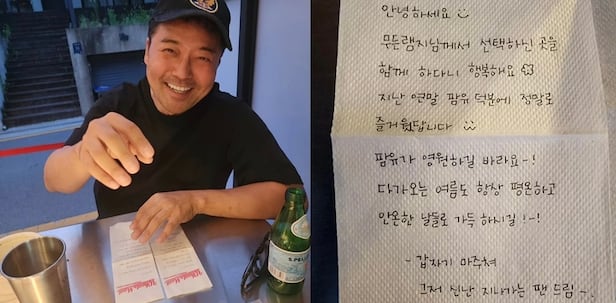 안녕하세요
무든램지님께서 선택하신 곳을
함께 하다니 행복해요
지난 연말 팜유 덕분에 정말로
즐거웠답니다
팜유가 영원하길 바라요~!
다가오는 여름도 항상 평온하고
안온한 날들로 가득 하시길!~!
- 갑자기 마주쳐
그저 신난 지나가는 팬 드림-
S.PELL